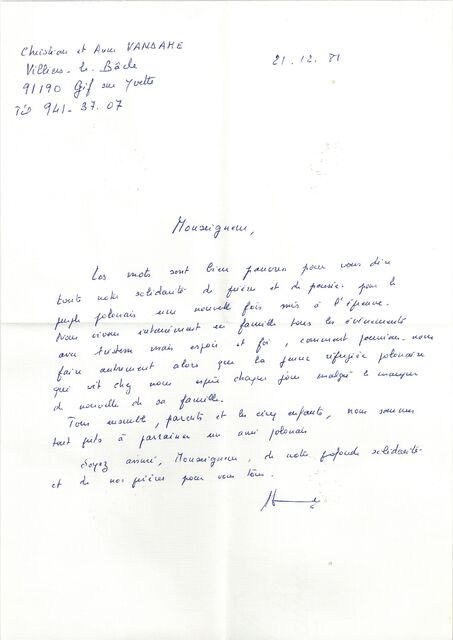 Christian et Anne VANDAME
Villiers-le-Bâcle
91190 Gif sur Yvette
Tél 941-37.07
21.12.81
Monseigneur,
Les mots sont bien pauvres pour vous dire
toute notre solidarité de prière et de pensée pour le
peuple polonais une nouvelle fois mis à l'épreuve.
Nous vivons intensément en famille tous les événements
avec tristesse mais espoir et foi, comment pourrions-nous
faire autrement alors que la jeune réfugiée polonaise
qui vit chez nous espère chaque jour malgré le manque
de nouvelle de sa famille.
Tous ensemble, parents et les cinq enfants, nous sommes
tout prêts à parrainer un ami polonais
Soyez assuré, Monseigneur, de notre profonde solidarité
et de nos prières pour vous tous.